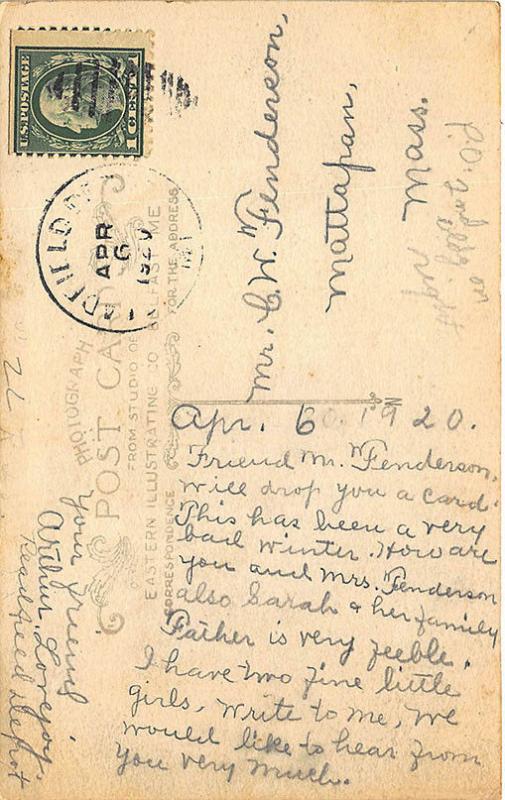 U.S. POSTAGE
1 CENT 1
APR
6
1920
PHOTOGRAPH
POST CARD
FROM STUDIO OF
EASTERN ILLUSTRATING CO BELFAST ME
CORRESPONDENCE
FOR THE ADDRESS
Mr. C. W. Fenderson,
Mattapan,
Mass.
Apr. 6 1920.
Friend Mr. Fenderson,
will drop you a card.
This has been a very
bad winter. How are
you and Mrs. Fenderson
also Sarah & her family
Father is very feeble.
I have two fine little
girls. Write to me, we
would like to hear from
you very much.
Your friend
Arthur Lovejoy,
Readfield Depot